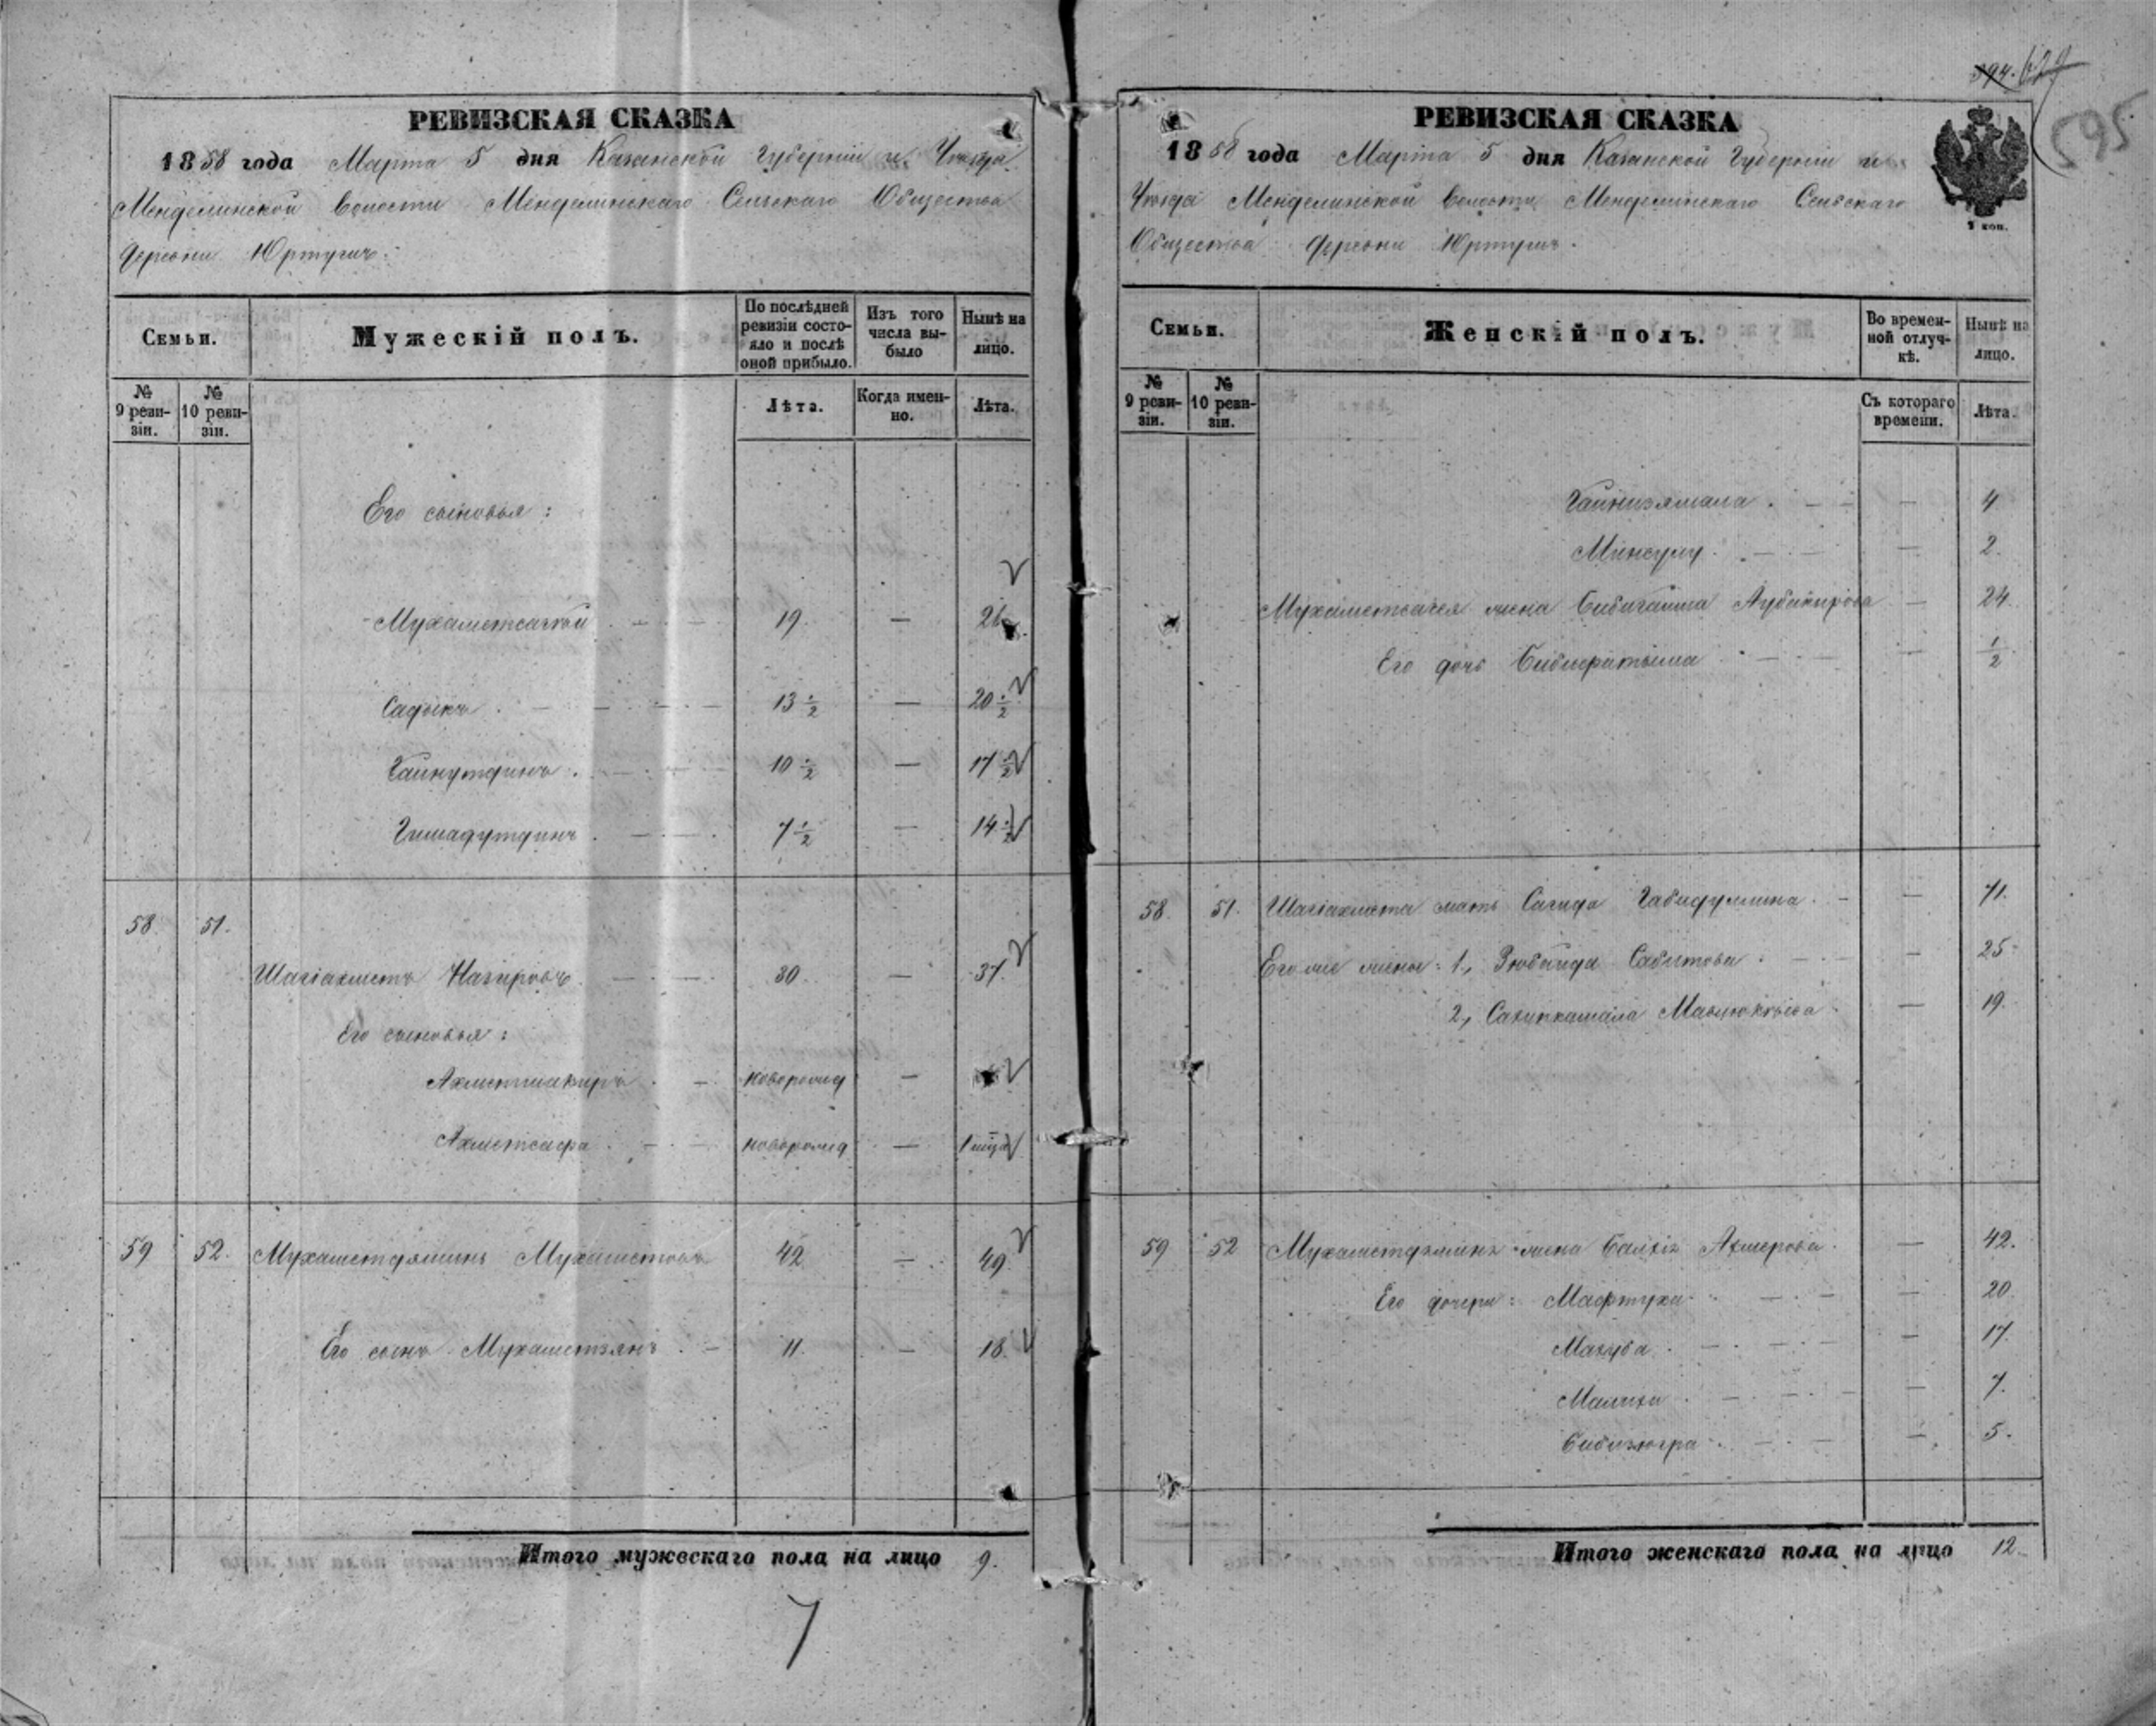 РЕВИЗСКАЯ СКАЗКА
1858 года Марта 5 дня Казанской Губерніи и Уѣзда
Менделинской Волости Менделинскаго Сельскаго Общества
Деревни Юртушъ.
Семьи.
Мужескій полъ.
По послѣдней ревизіи состо-яло и послѣ оной прибыло.
Изъ того числа вы-было
Нынѣ на лицо.
№ 9 реви-зіи.
№ 10 реви-зіи.
Лѣта.
Когда имен-но.
Лѣта.
Его сыновья:
Мухаметсагѣй 19. —
Садыкъ 13 1/2 — 20 1/2
Гайнутдинъ 10 1/2 — 17 1/2
Гимадутдинъ 7 1/2 — 14 1/2
58. 51.
Шагіахметъ Назировъ 30. — 37.
Его сыновья:
Ахметшакиръ новорожд —
Ахметсафа новорожд — 1 мѣц
59 52. Мухаметдяминъ Мухаметовъ 42 — 49
Его сынъ Мухаметзянъ 11. — 18.
Итого мужескаго пола на лицо 9.
7
394.
595
РЕВИЗСКАЯ СКАЗКА
1858 года Марта 5 дня Казанской Губерніи и
Уѣзда Менделинской Волости Менделинскаго Сельскаго
Общества Деревни Юртушъ.
1 коп.
Семьи.
Женскій полъ.
Во времен-ной отлуч-кѣ.
Нынѣ на лицо.
№ 9 реви-зіи.
№ 10 реви-зіи.
Съ котораго времени.
Лѣта.
Гайнизямала — 4
Минсулу — 2.
Мухаметсагея жена Бибигайша Аубакирова — 24.
Его дочь Бибифатыма — 1/2
58. 51. Шагіахмета мать Сагида Габидуллина — 71.
Его же жены: 1, Зюбайда Сабитова — 25
2, — 19.
59 52 Мухаметдямина жена Ахмерова — 42.
Его дочери: Мафтуха — 20
Махуба — 17.
Малиха — 7.
Бибизюгра — 5.
Итого женскаго пола на лицо 12.